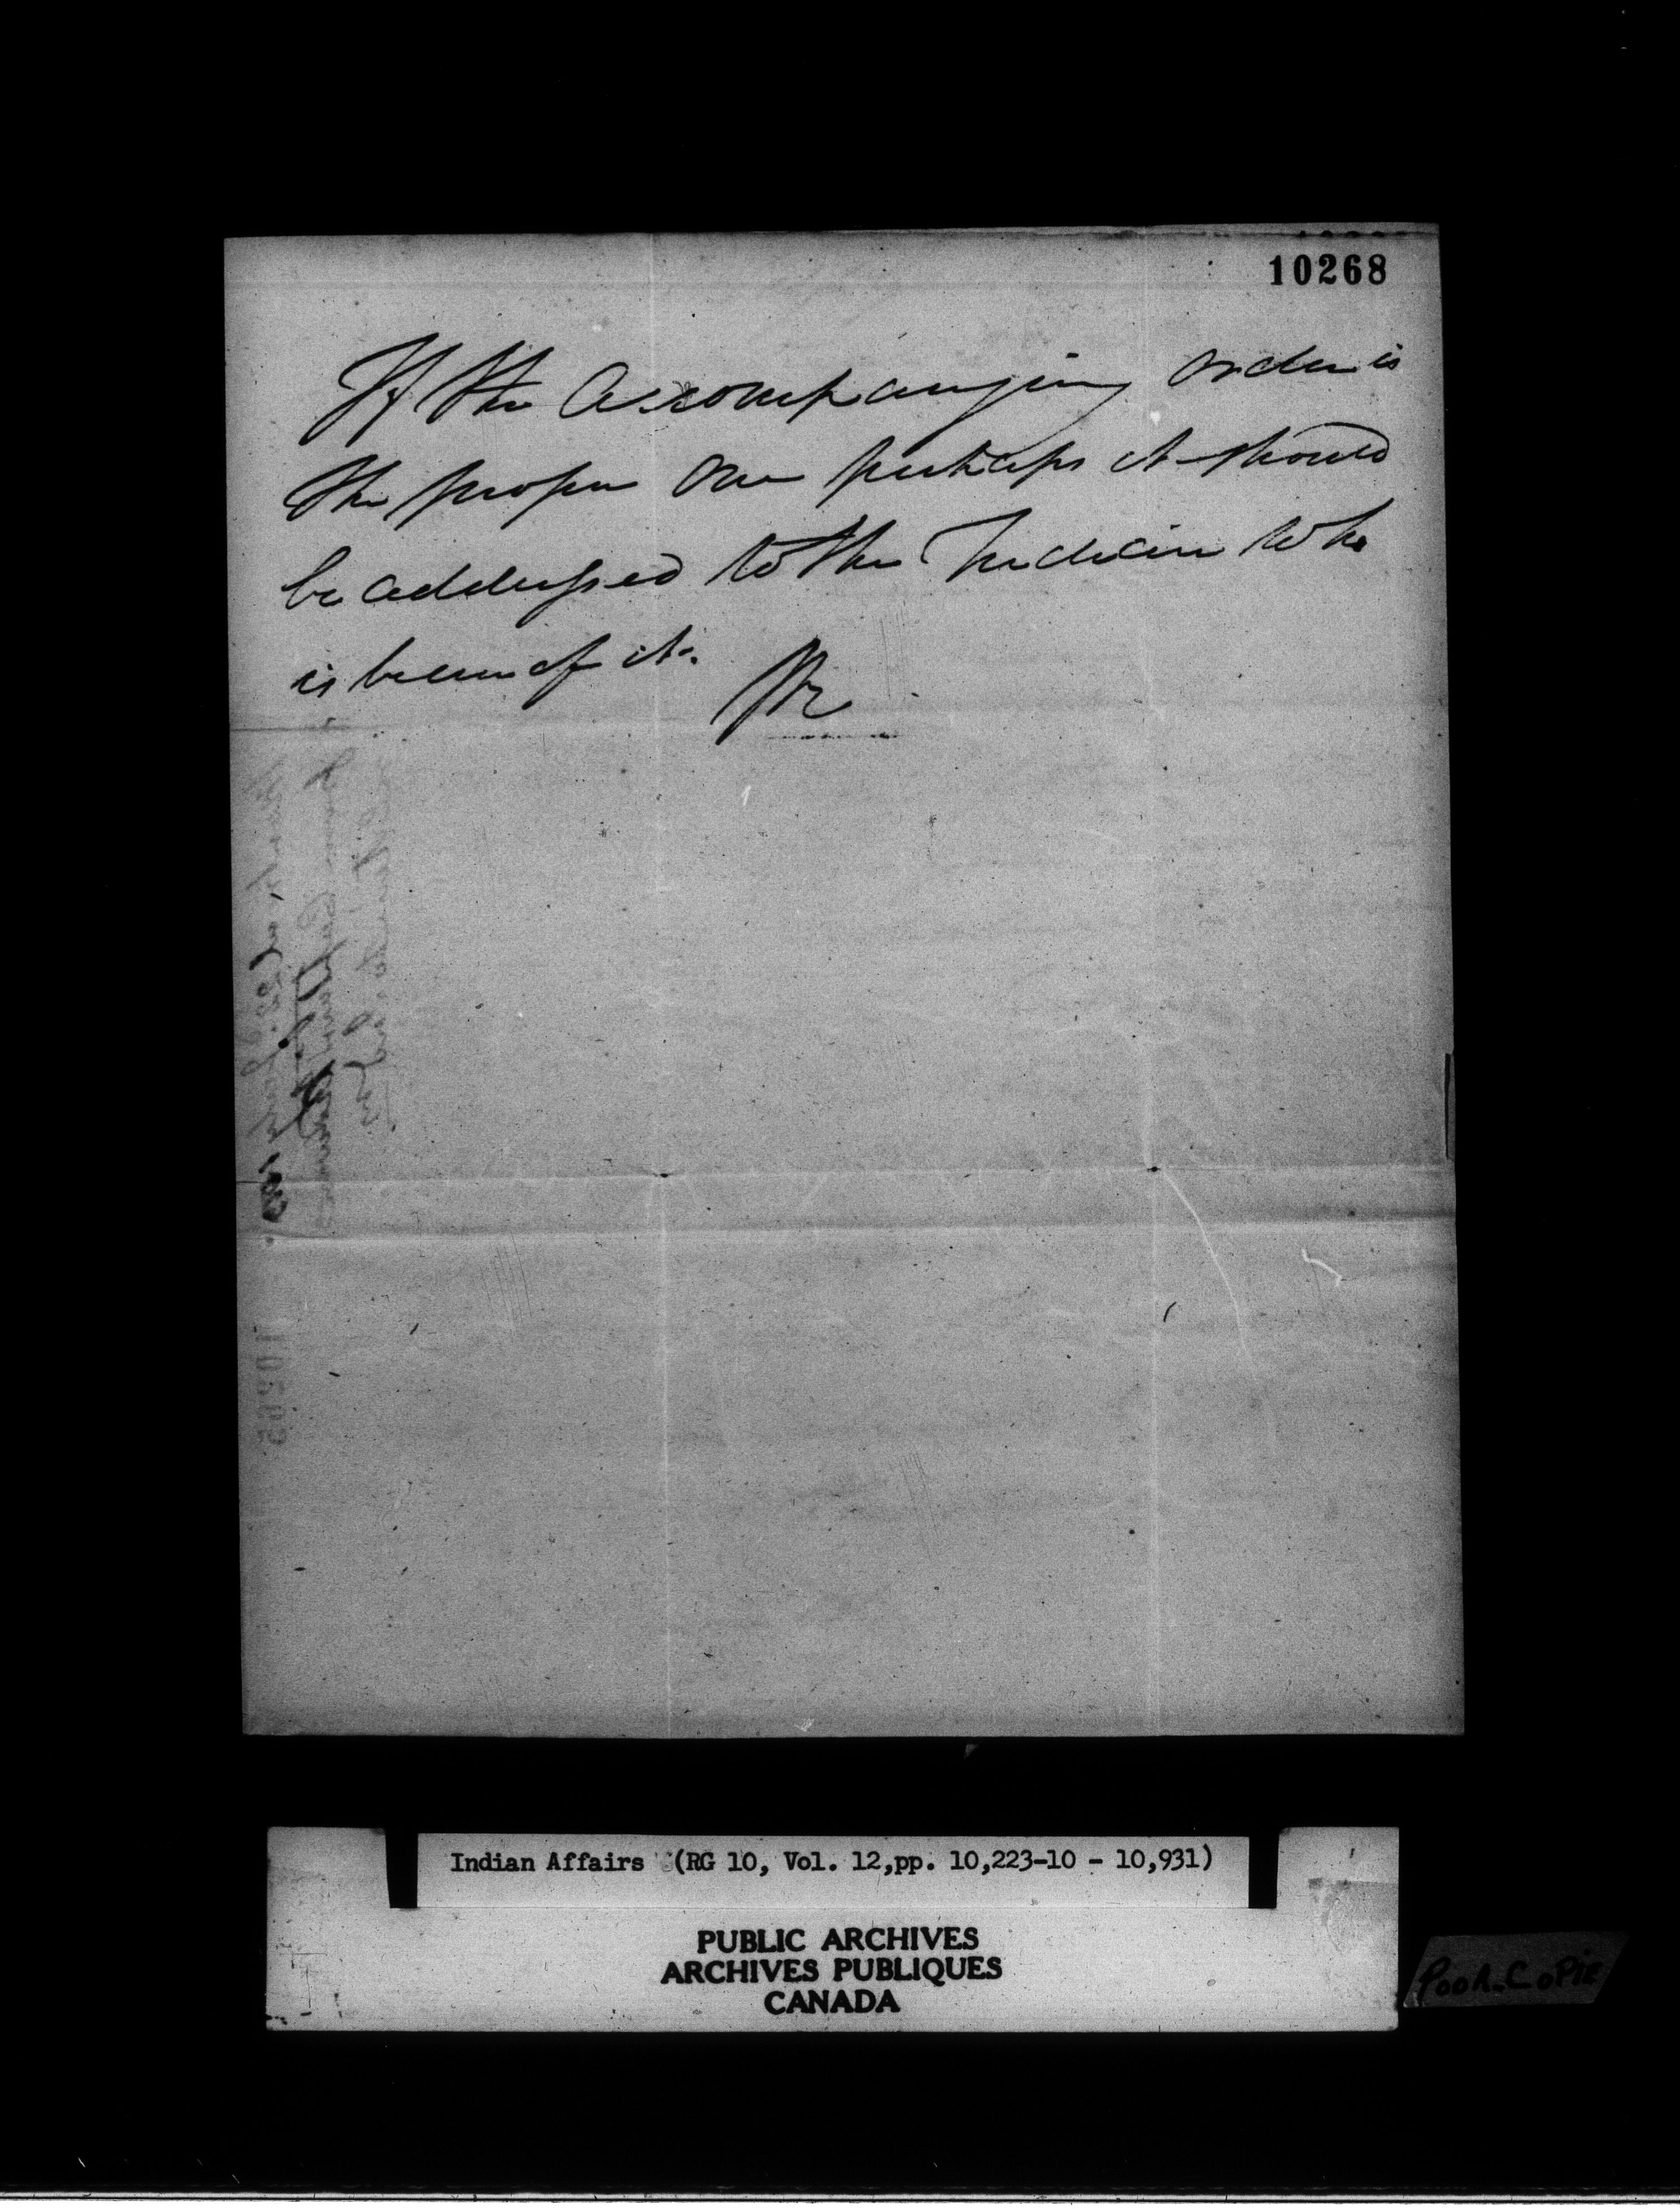 10268
If the Accompanying order is
the proper one perhaps it should
be addressed to the Indian who
is bearer of it.
Indian Affairs (RG 10, Vol. 12,pp. 10,223-10 - 10,931)
PUBLIC ARCHIVES
ARCHIVES PUBLIQUES
CANADA
POOR COPIE